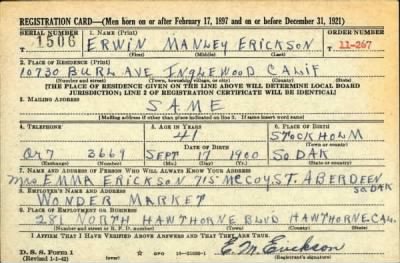 REGISTRATION CARD—(Men born on or after February 17, 1897 and on or before December 31, 1921)
SERIAL NUMBER 1. NAME (Print) ORDER NUMBER
1506 ERWIN MANLEY ERICKSON 11-267
(First) (Middle) (Last)
2. PLACE OF RESIDENCE (Print)
10730 BURL AVE INGLEWOOD CALIF
(Number and street) (Town, township, village, or city) (County) (State)
[THE PLACE OF RESIDENCE GIVEN ON THE LINE ABOVE WILL DETERMINE LOCAL BOARD
JURISDICTION; LINE 2 OF REGISTRATION CERTIFICATE WILL BE IDENTICAL]
3. MAILING ADDRESS
SAME
[Mailing address if other than place indicated on line 2. If same insert word same]
4. TELEPHONE 5. AGE IN YEARS 6. PLACE OF BIRTH
41 STOCKHOLM
DATE OF BIRTH
3669 SEPT 17 1900 SO. DAK
(Exchange) (Number) (Mo.) (Day) (Yr.) (State or country)
7. NAME AND ADDRESS OF PERSON WHO WILL ALWAYS KNOW YOUR ADDRESS
MRS EMMA ERICKSON 715 MCCOY ST. ABERDEEN
SO DAK
8. EMPLOYER'S NAME AND ADDRESS
WONDER MARKET
9. PLACE OF EMPLOYMENT OR BUSINESS
281 NORTH HAWTHORNE BLVD HAWTHORNE. CAL.
(Number and street or R. F. D. number) (Town) (County) (State)
I AFFIRM THAT I HAVE VERIFIED ABOVE ANSWERS AND THAT THEY ARE TRUE.
E. M. Erickson
D. S. S. Form 1
(Revised 1-1-42) GPO (Registrant's signature)